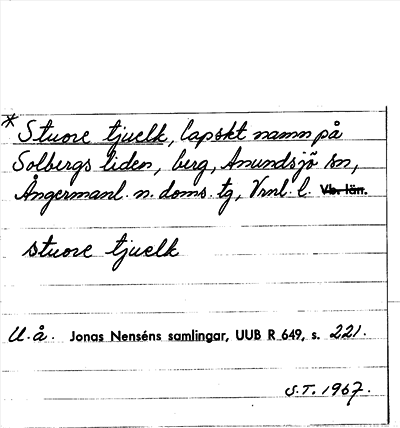 * Stuore tjuelk, lapskt namn på
Solbergsliden, berg, Anundsjö sn,
Ångermanl. n. doms. tg, Vrnl. l. Vb. län.
stuore tjuelk
U. å. Jonas Nenséns samlingar, UUB R 649, s. 221.
S.T. 1967.